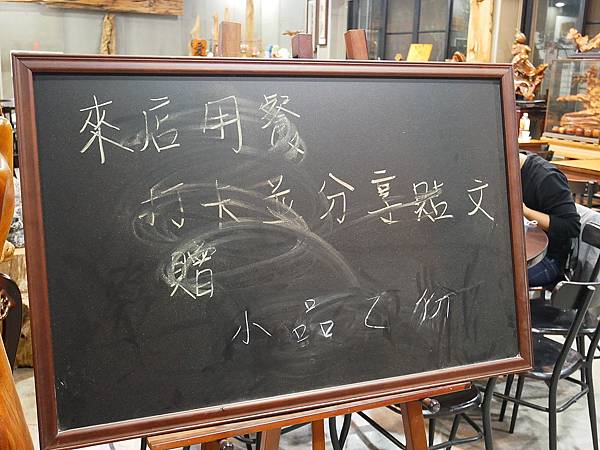 來店用餐
打卡並分享貼文
贈
小品乙份